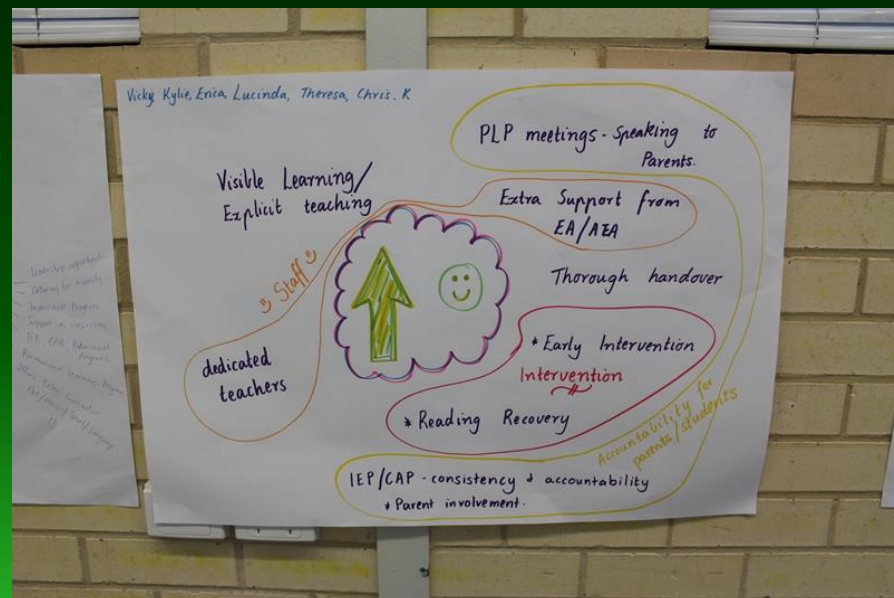 Vicky, Kylie, Erica, Lucinda, Theresa, Chris. K
PLP meetings - Speaking to
Parents.
Visible Learning/
Explicit teaching
Extra Support from
EA/AEA
Staff
Thorough handover
dedicated
teachers
* Early Intervention
Intervention
* Reading Recovery
Accountability for
parents/students
IEP/CAP - consistency & accountability
* Parent involvement.